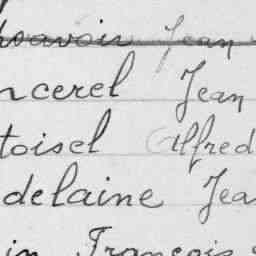 Jean
ncerel Jean
toisel Alfred
delaine Jea
in François